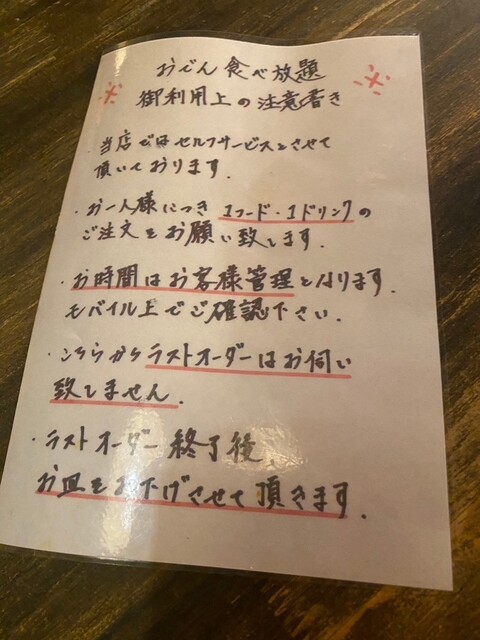 おでん食べ放題
※ 御利用上の注意書き ※
・当店ではセルフサービスとさせて
頂いております.
・お一人様につき 1フード・1ドリンクの
ご注文をお願い致します.
・お時間はお客様管理となります.
モバイル上でご確認下さい.
・こちらからラストオーダーはお伺い
致しません.
・ラストオーダー終了後
お皿をお下げさせて頂きます.